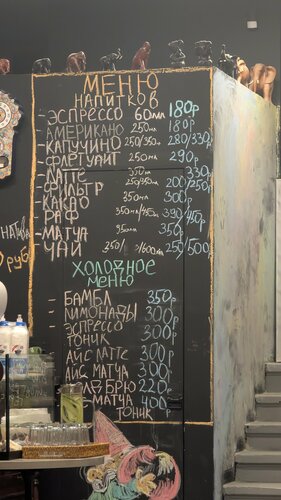 МЕНЮ
НАПИТКОВ
- ЭСПРЕССО 60мл 180р
- АМЕРИКАНО 250мл 180р
- КАПУЧИНО 250/350мл 280/330р
- ФЛЕТУАЙТ 250мл 290р
- ЛАТТЕ 350мл 330р
- ФИЛЬТР 250/350мл 200/250р
- КАКАО 350мл 300р
- РАФ 350мл/450мл 390/450р
- МАТЧА 350р
- ЧАЙ 250/500р
ХОЛОДНОЕ
МЕНЮ
- БАМБЛ 350р
- ЛИМОНАДЫ 300р
- ЭСПРЕССО
ТОНИК 300р
- АЙС ЛАТТЕ 300р
- АЙС МАТЧА 300р
БРЮ 220р
- МАТЧА
ТОНИК 400р
руб